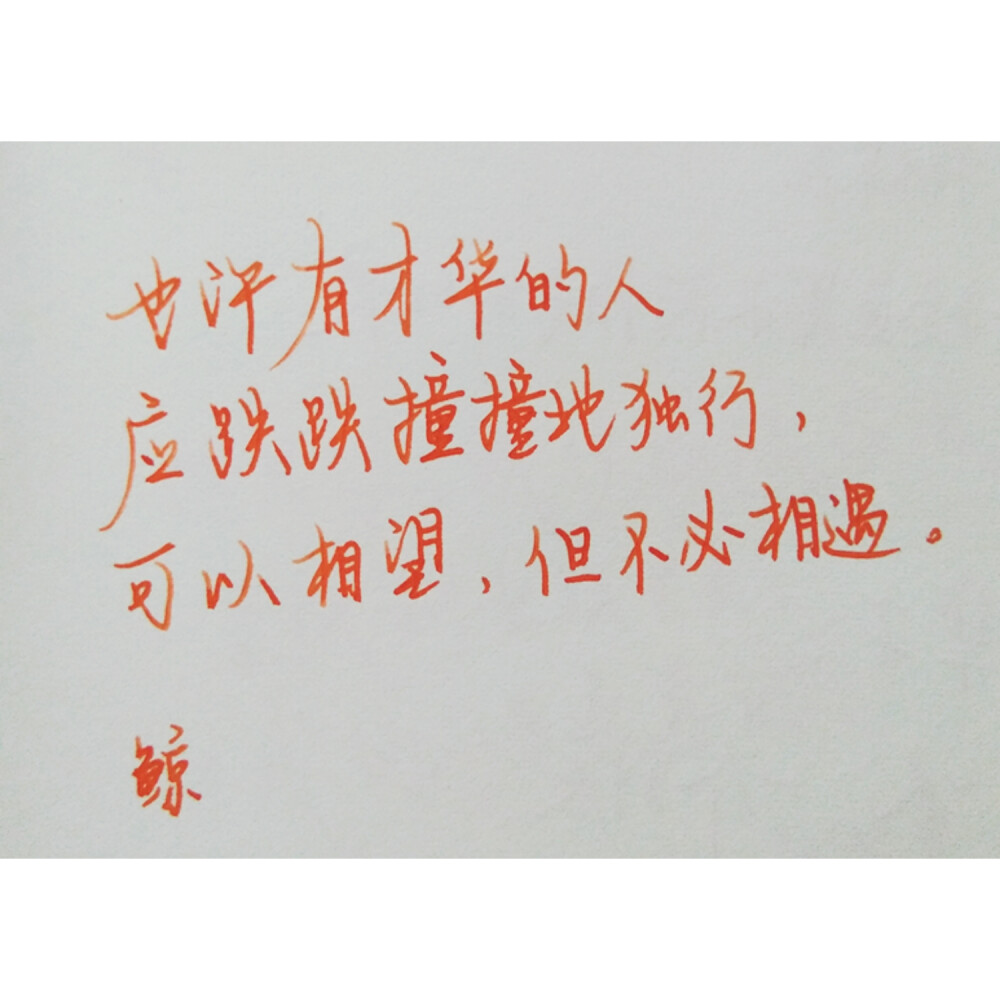 也许有才华的人
应跌跌撞撞地独行，
可以相望，但不必相遇。
鲸